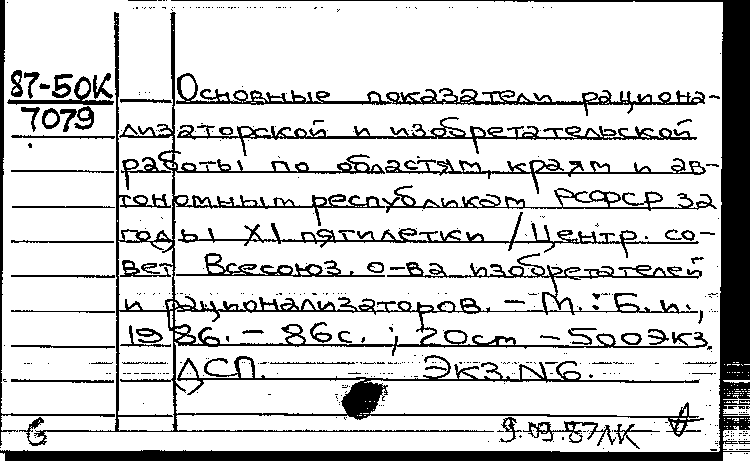 87-50К
7079
Основные показатели рациона-
лизаторской и изобретательской
работы по областям, краям и ав-
тономным республикам РСФСР за
годы XI пятилетки / Центр. со-
вет Всесоюз. о-ва изобретателей
и рационализаторов. - М.: Б.и.,
1986. - 86с. ; 20см. - 500экз.
ДСП. Экз.N6.
9.09.87ЛК